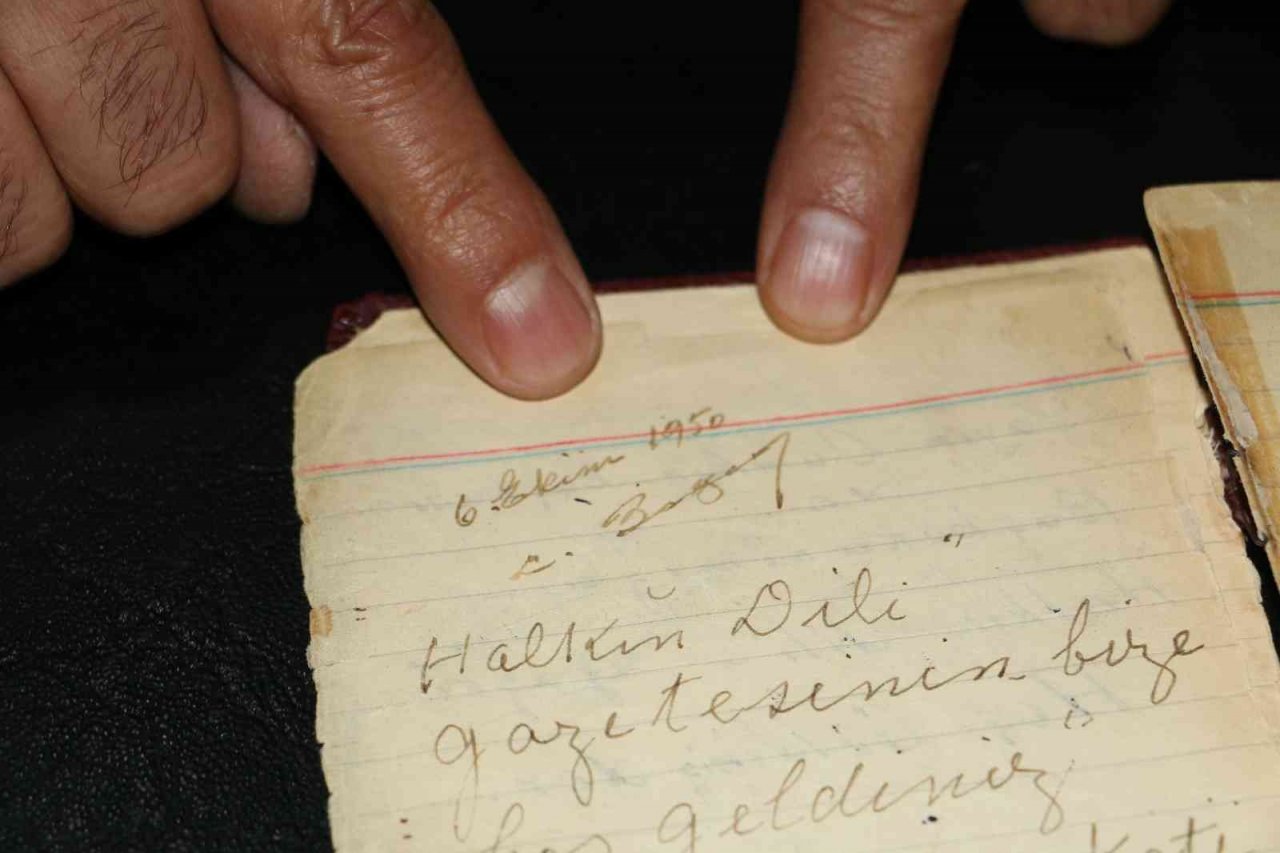 6 Ekim 1950
" Halkın Dili "
gazetesinin bize
" hoş geldiniz "